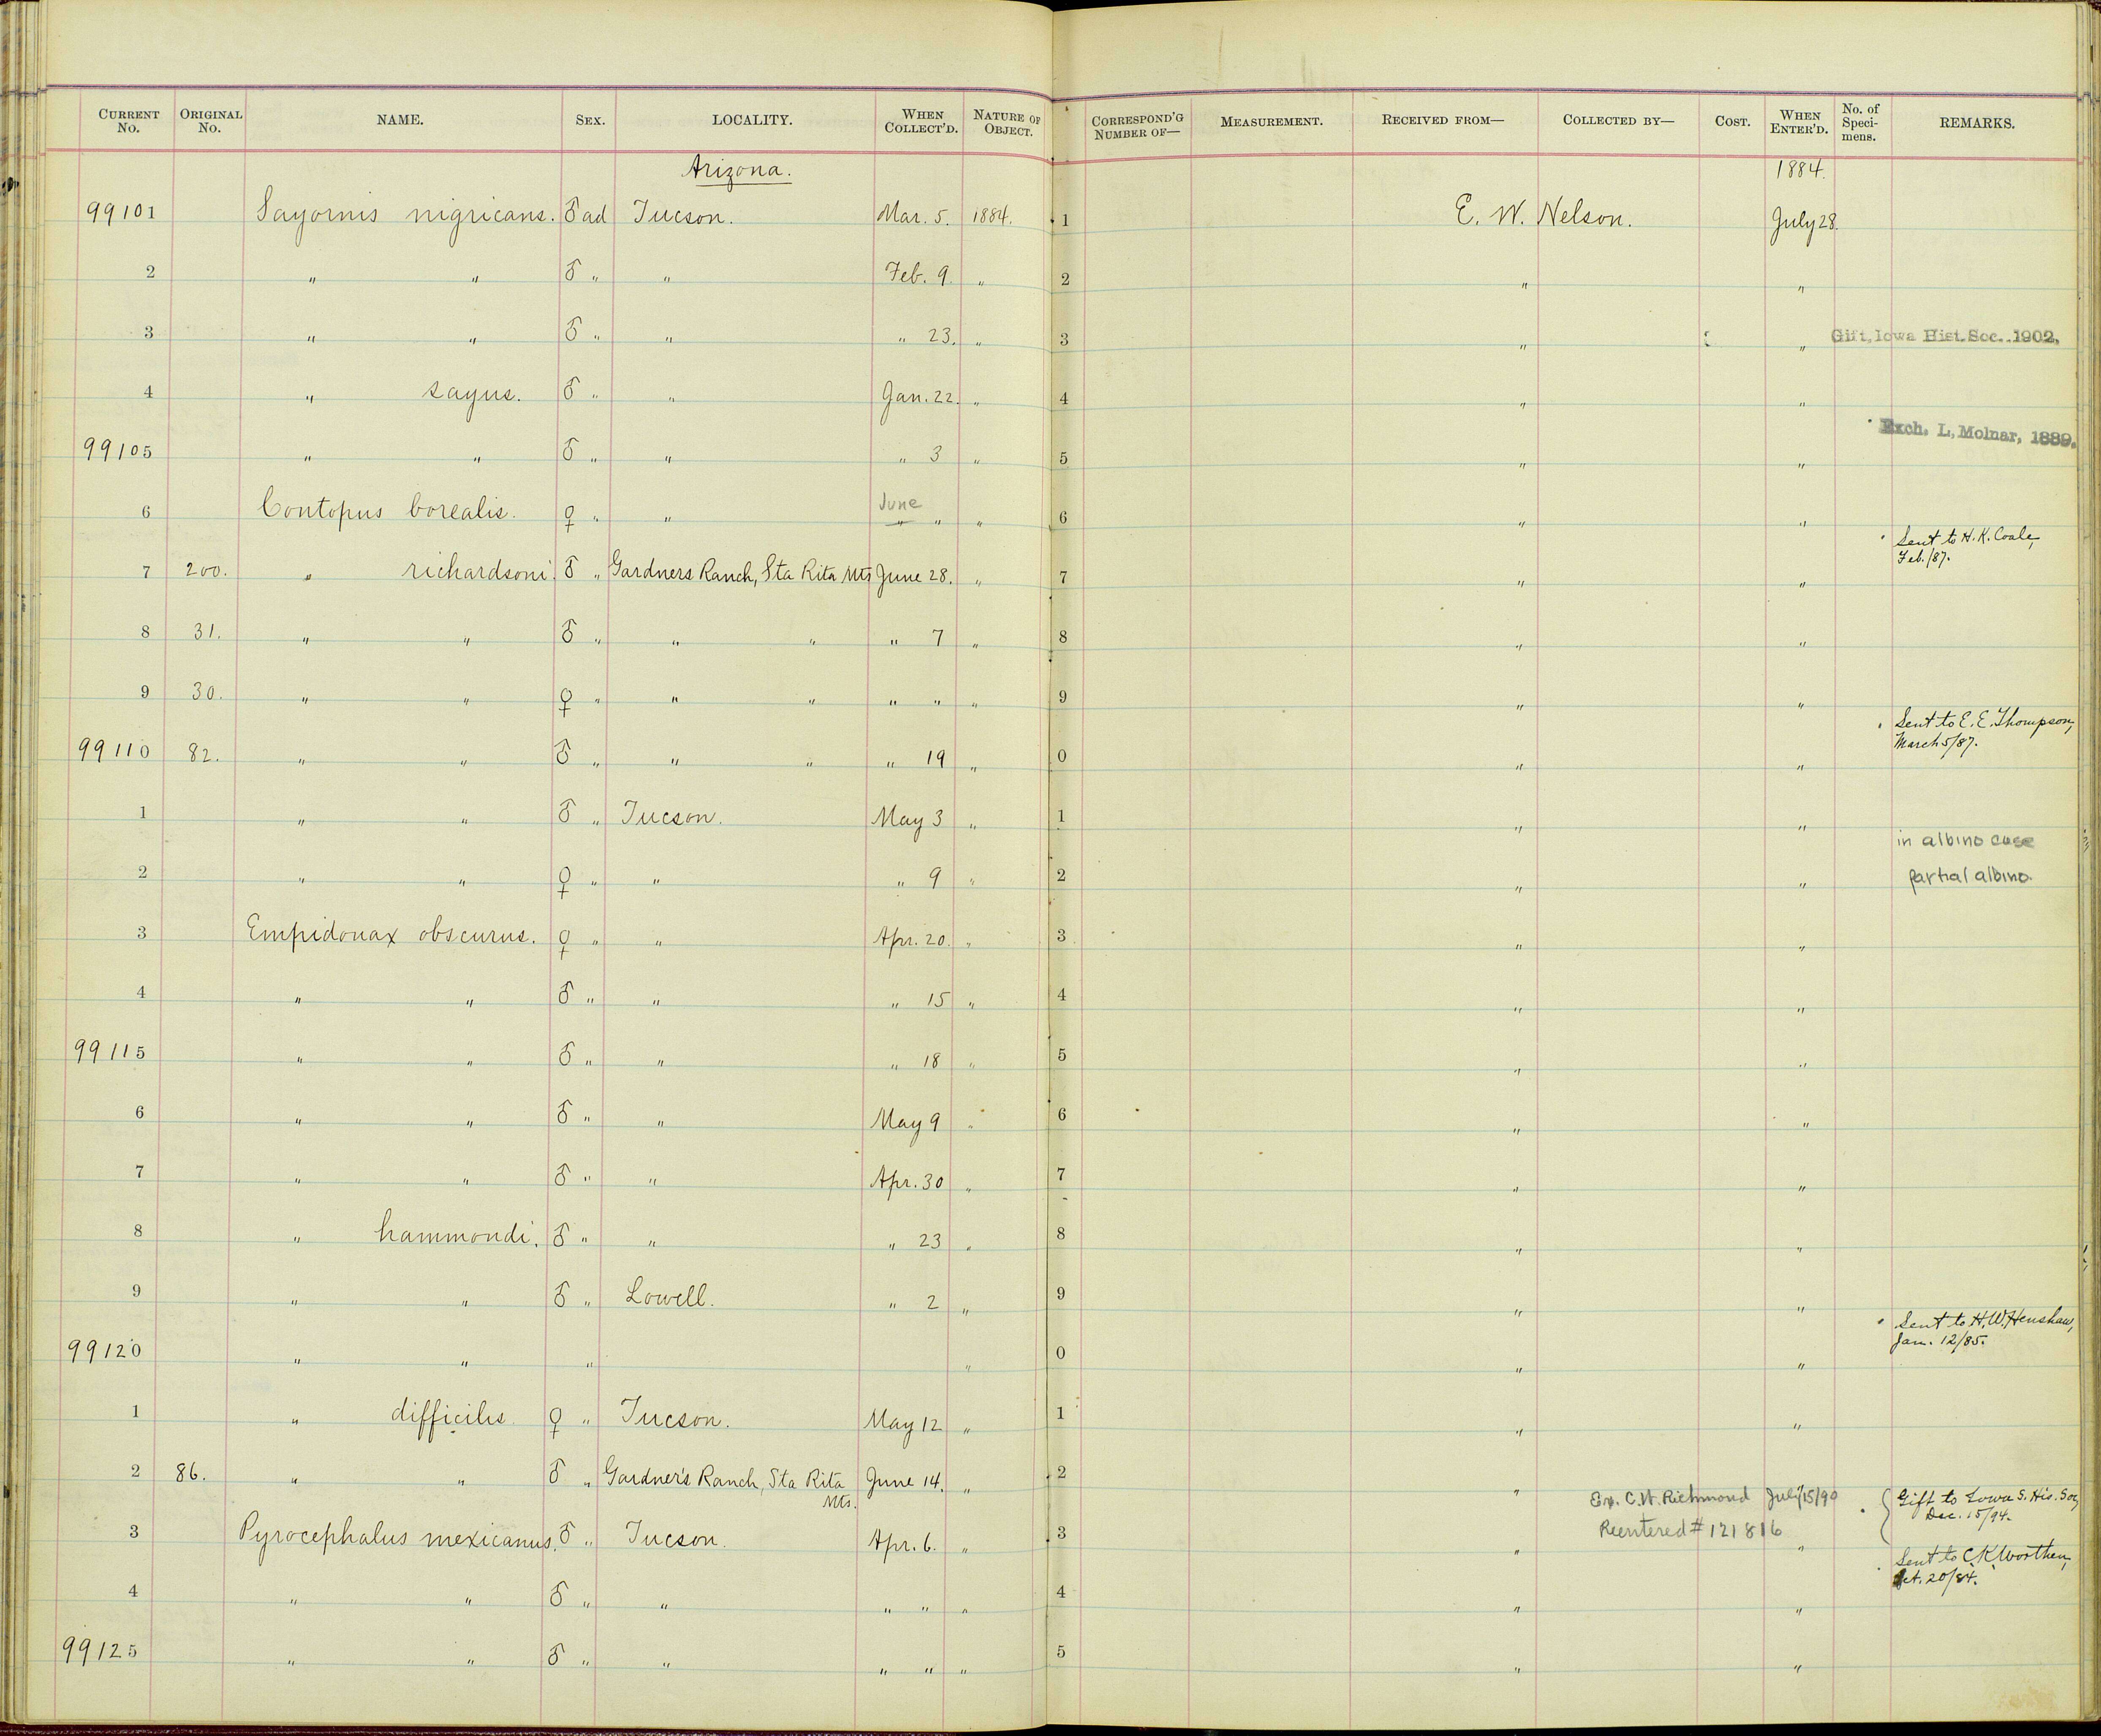 CURRENT No. ORIGINAL No. NAME. SEX. LOCALITY. WHEN COLLECT'D. NATURE OF OBJECT. CORRESPOND'G NUMBER OF— MEASUREMENT. RECEIVED FROM— COLLECTED BY— COST. WHEN ENTER'D. No. of Speci-mens. REMARKS.
Arizona. 1884.
99101 Sayornis nigricans. ♂ ad Tucson. Mar. 5. 1884. 1 E. W. Nelson. July 28.
2 " " ♂ " " Feb. 9. " 2 " "
3 " " ♂ " " " 23. " 3 " " Gift, Iowa Hist. Soc. 1902.
4 " sayus. ♂ " " Jan. 22. " 4 " "
Exch. L. Molnar, 1889.
99105 " " ♂ " " " 3 " 5 " "
June
6 Contopus borealis. ♀ " " " " " 6 " "
Sent to H. K. Coale,
Feb. /87.
7 200. " richardsoni. ♂ " Gardners Ranch, Sta Rita Mts June 28. " 7 " "
8 31. " " ♂ " " " " 7 " 8 " "
9 30. " " ♀ " " " " " " 9 " "
Sent to E. E. Thompson,
March 5/87.
99110 82. " " ♂ " " " " 19 " 0 " "
1 " " ♂ " Tucson. May 3 " 1 " "
in albino case
2 " " ♀ " " " 9 " 2 " " partial albino.
3 Empidonax obscurus. ♀ " " Apr. 20. " 3 " "
4 " " ♂ " " " 15 " 4 " "
99115 " " ♂ " " " 18 " 5 " "
6 " " ♂ " " May 9 " 6 " "
7 " " ♂ " " Apr. 30 " 7 " "
8 " hammondi. ♂ " " " 23 " 8 " "
9 " " ♂ " Lowell. " 2 " 9 " "
Sent to H. W. Henshaw,
Jan. 12/85.
99120 " " " " 0 " "
1 " difficilis. ♀ " Tucson. May 12 " 1 " "
2 86. " " ♂ " Gardner's Ranch, Sta Rita Mts. June 14. " 2 "
Ex. C. W. Richmond July 15/90
Reentered # 121816
Gift to Iowa S. His. Soc,
Dec. 15/94.
3 Pyrocephalus mexicanus. ♂ " Tucson. Apr. 6. " 3 " "
Sent to C. K. Worthen,
Oct. 20/84.
4 " " ♂ " " " " " 4 " "
99125 " " ♂ " " " " " 5 " "